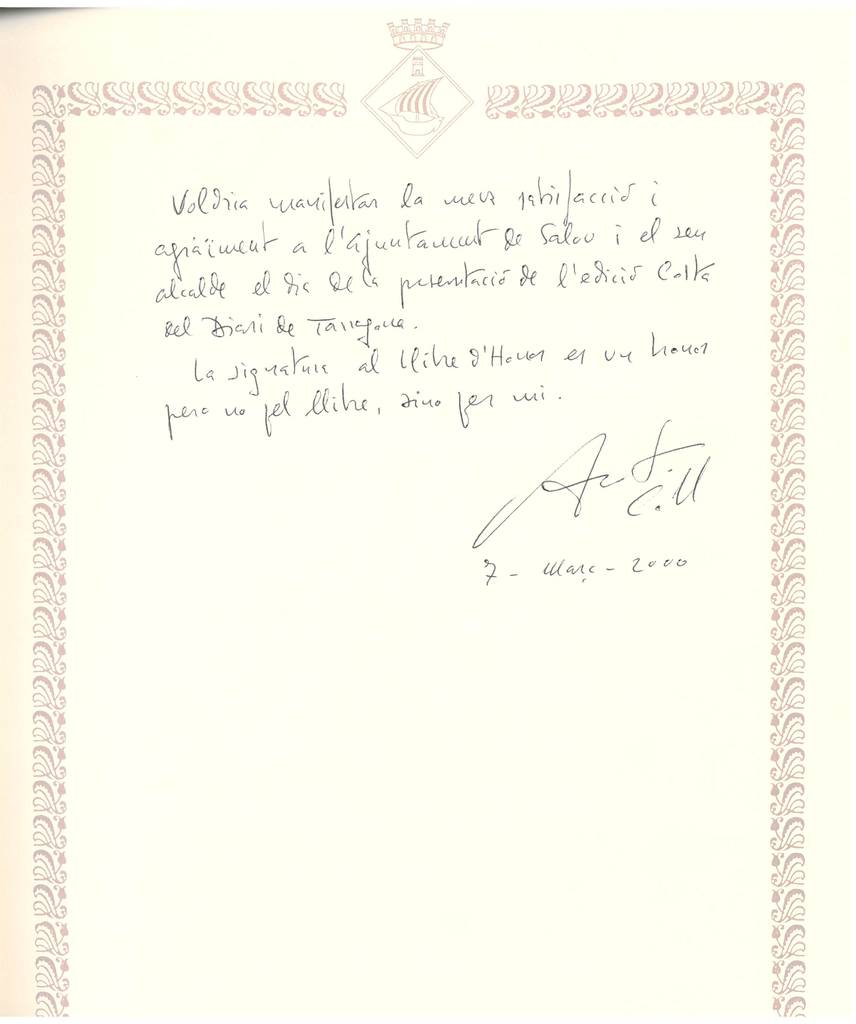 Voldria manifestar la meva satisfacció i
agraïment a l'Ajuntament de Salou i el seu
alcalde el dia de la presentació de l'edició Costa
del Diari de Tarragona.
La signatura al Llibre d'Honor es un honor
pero no pel llibre, sino per mi.
7 - Març - 2000